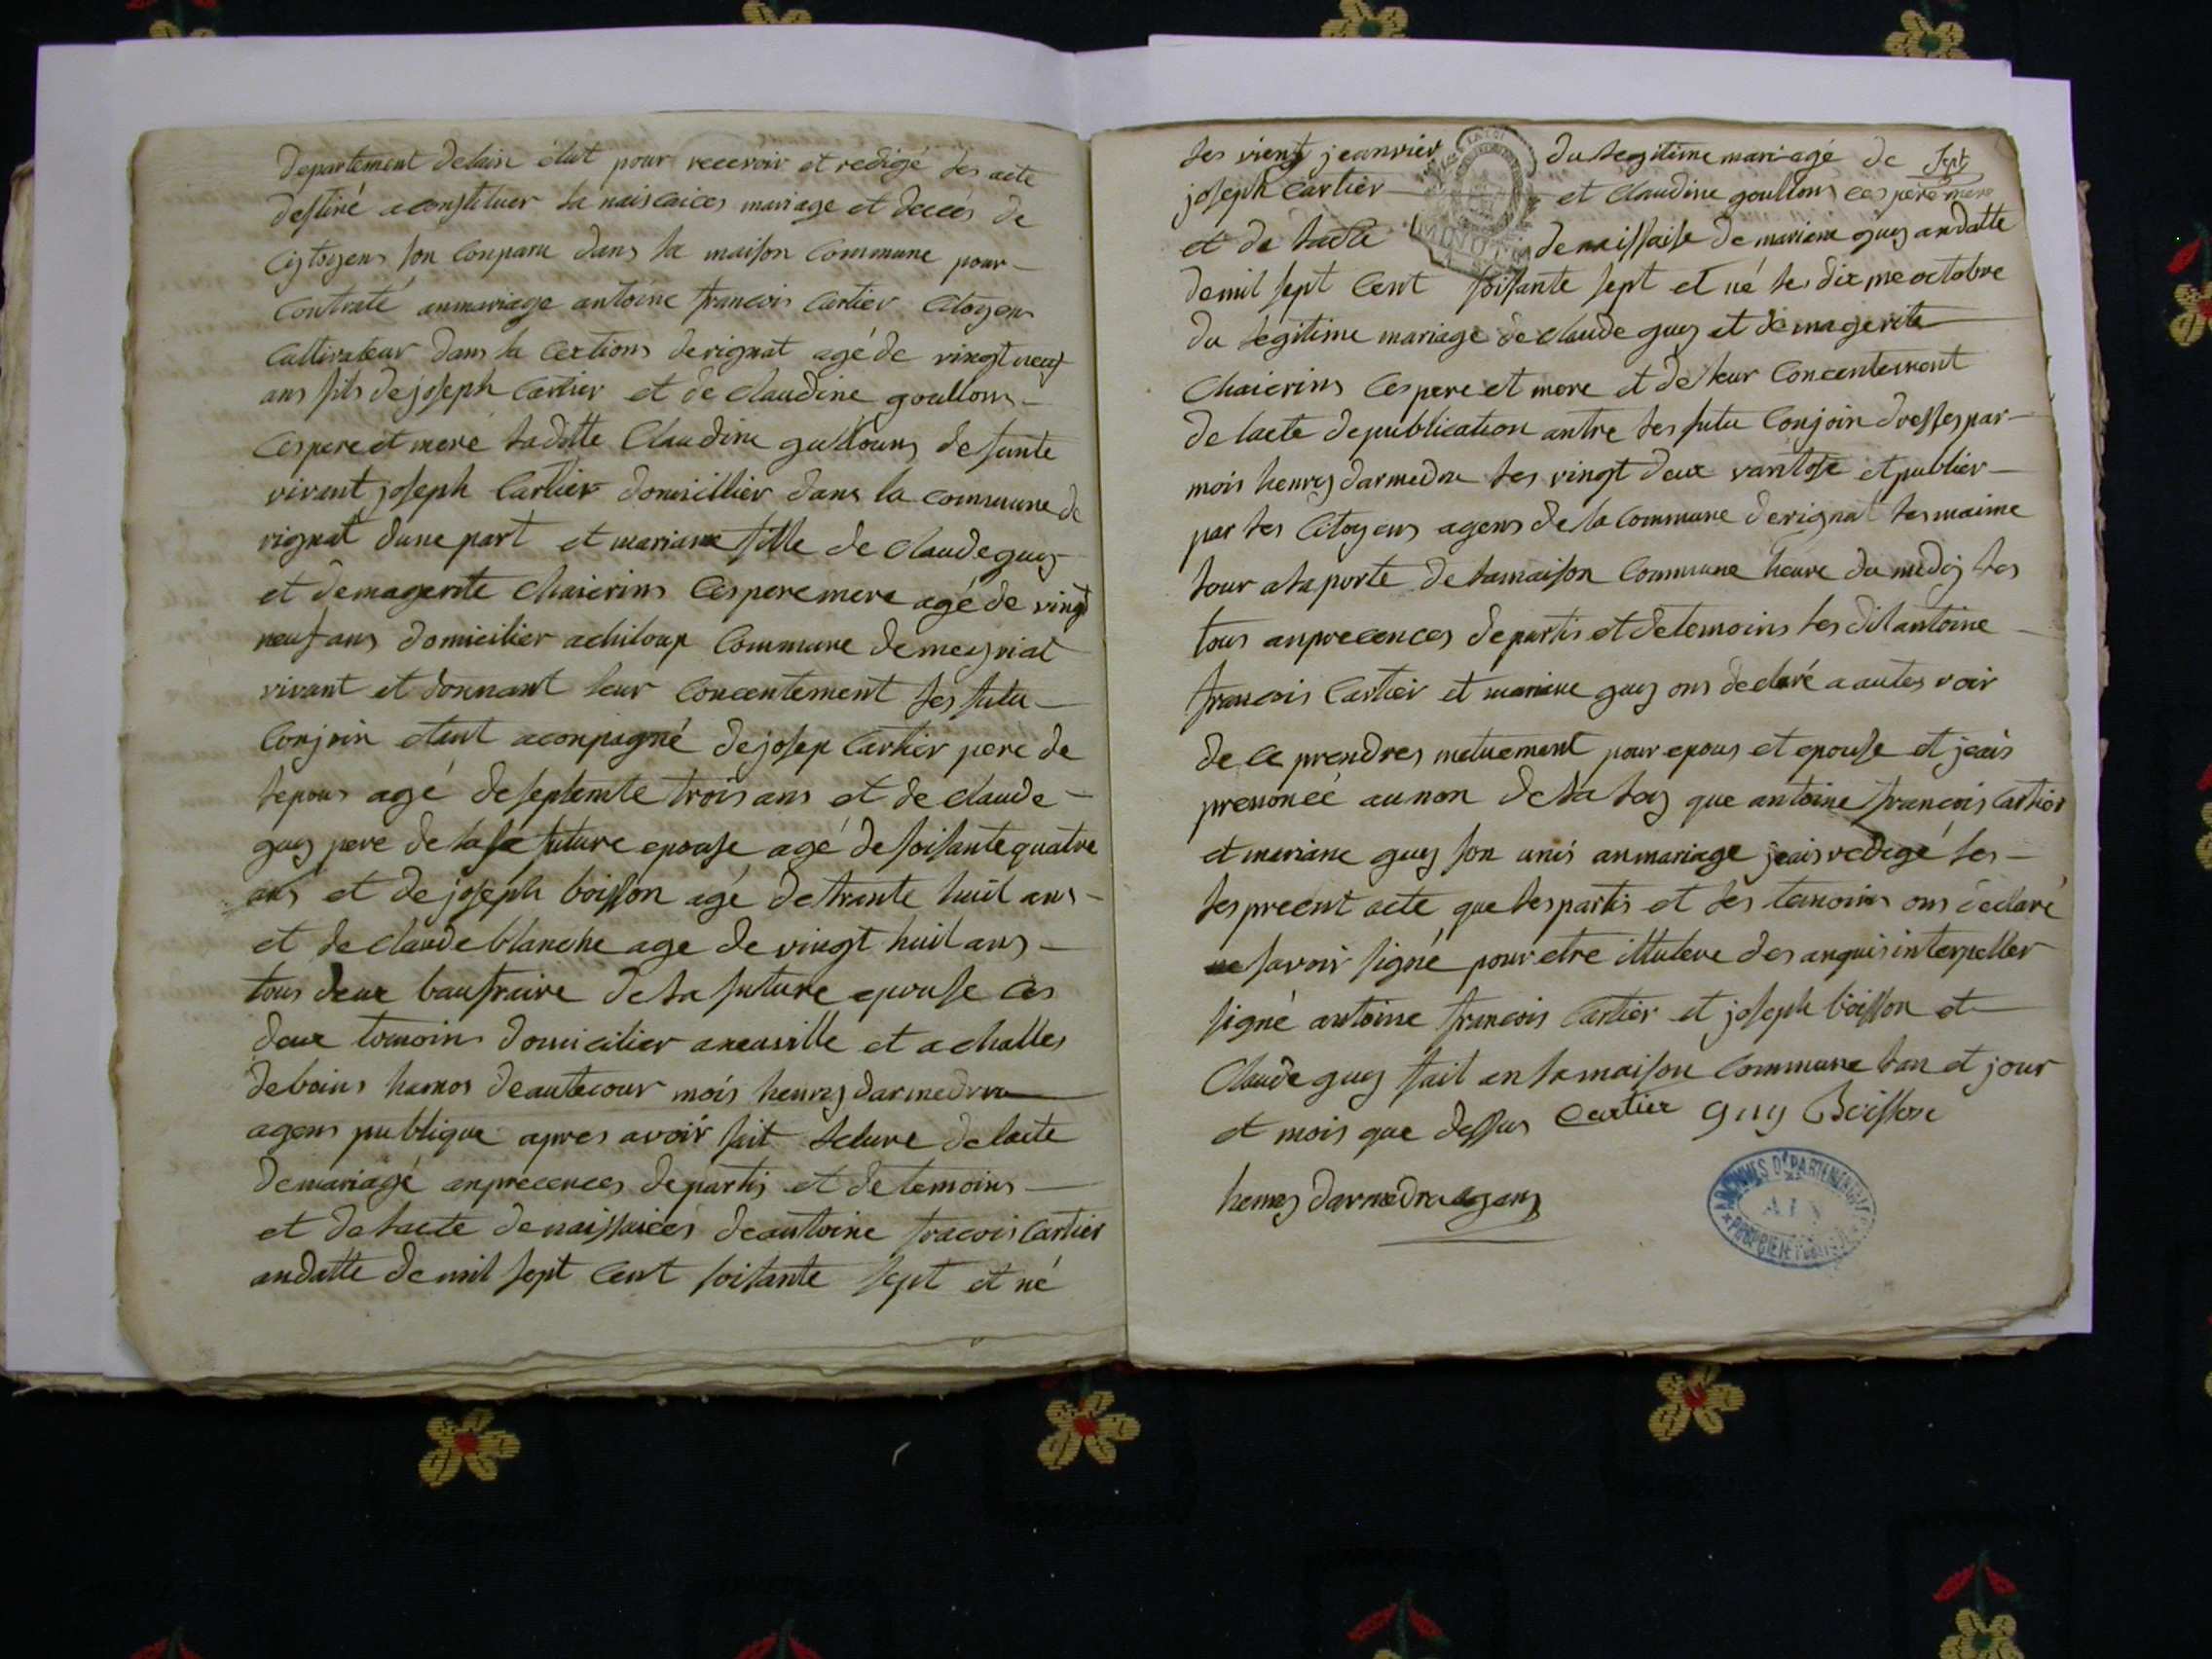 departement delain élut pour recevoir et redigé les acte
destiné a constituer la naiscaices mariage et decces de
cigtoyens son conparu dans la maison commune pour
contraté anmariage antoine francois Cartier citoyens
Cultivateur dans la Cextions derignat agé de vingt neuf
ans fils de joseph Cartier et de Claudine goullons
Ces pere et mere laditte Claudine gullouns defunte
vivent joseph Cartier domicillier dans la commune de
rignat dune part et mariane fille de Claude guy
et demagerite Chaierins Ces pere mere agé de vingt
neuf ans domicilier achiloup Commune demeyriat
vivant et donnant leur concentement les futu
Conjoin etant aconpagné dejosep Cartier pere de
lepous agé deseptente trois ans et de claude
guy pere de la future epouse agé desoisante quatre
ans et de joseph boisson agé detrante huit ans
et de Claude blanche age de vingt huit ans
tous deux baufraire de la future epouse Ces
deux temoins domicilier aneuville et a challes
debouis hamos deautecour mois henry darmedru
agens publique apres avoir fait lelure delacte
demariagé anprecences departis et detemoins
et delacte denaissaices deantoine fracois Cartier
andatte demil sept Cent soisante sept et né
les vient jeanvier du legitime mariagé de
Sept
joseph Cartier et Claudine goullons ces pere mere
et de lacte denaissaise de mariane guy andatte
demil sept Cent soisante sept et né les dix me octobre
du legitime mariage de Claude guy et demagerite
Chaierins Ces pere et mere et de leur Concentement
de lacte depublication antre les futu Conjoin dresses par
mois henry darmedru les vingt deux vantose et publier
par les Citoyens agens de la Commune derignat les maime
lour a la porte de lamaison Commune heure du medy les
tous anprecences departis et detemoins les dit antoine
francois Cartier et mariane guy ons declaré a autes voir
de ce prendres metuement pour epous et epouse et jeais
prenoncé aunon de la loy que antoine francois Cartier
et mariane guy son unis anmariage jeais redigé les
les precent acte que les partis et les temoins ons déclaré
ne savoir signé pour etre des anquis interpeller
signé antoine francois Cartier et joseph boisson et
Claude guy fait en lamaison Commune lan et jour
et mois que dessus Cartier guy Boisson
henry darmedru agens
ARCHIVES DÉPARTEMENTALES
AIN
PROPRIÉTÉ PUBLIQUE